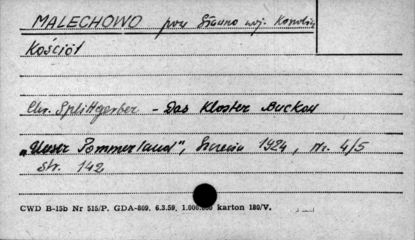 MALECHOWO pow Sławno woj. Koszalin
Kościół
Chr. Splittgerber - Das Kloster Buckow
„Unser Pommerland", Szczecin 1924, nr. 4/5
str. 142
CWD B-15b Nr 515/P. GDA-809. 6.3.59, 1.000.000 karton 180/V.